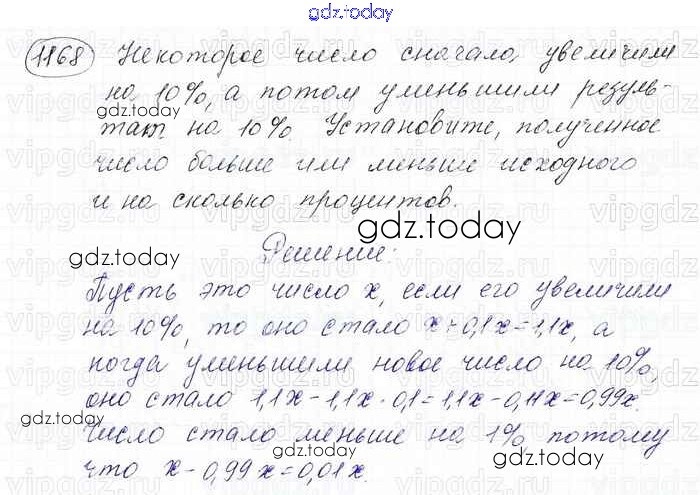 gdz.today
1168 Некоторое число сначала, увеличили
на 10%, а потом уменьшили резуль-
gdz.today
тат на 10%. Установите, полученное
число больше или меньше исходного
и на сколько процентов.
gdz.today
gdz.today
Решение:
Пусть это число x, если его увеличили
на 10%, то оно стало x+0,1x=1,1x, а
когда уменьшили новое число на 10%,
оно стало 1,1x-1,1x·0,1=1,1x-0,11x=0,99x.
gdz.today
Число стало меньше на 1% потому
что x-0,99x=0,01x.
gdz.today